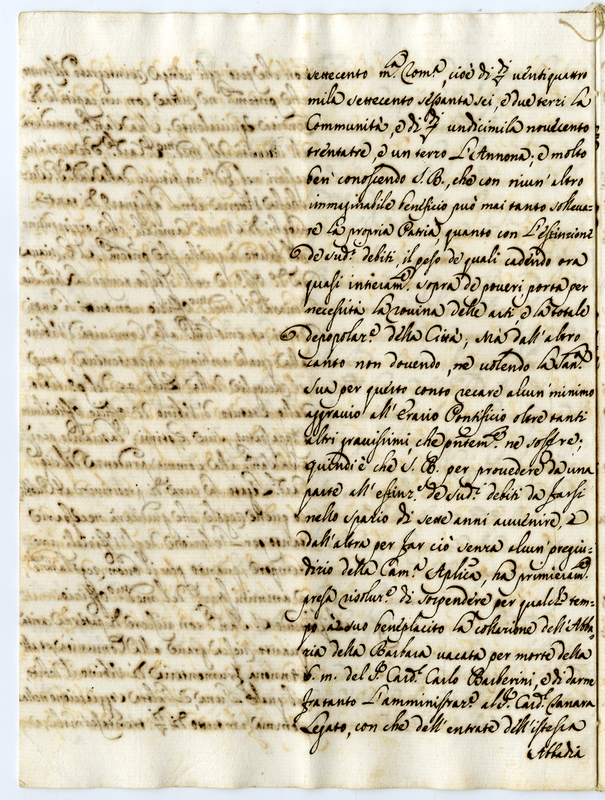 settecento m.ª Rom.ª, cioè di ventiquattro
mila settecento sessanta sei, e due terzi la
Communità, e di undicimila novecento
trentatre, e un terzo L'Annona; e molto
ben' conoscendo S. B., che con niun' altro
immaginabile beneficio può mai tanto solleva-
re la propria Patria quanto con L'estinzione
de sud.ⁱ debiti, il peso de quali cadendo ora
quasi intieram.ᵉ sopra de poveri porta per
necessità la rovina delle arti e la totale
depopolaz.ᵉ della Città; Mà dall'altro
canto non dovendo, ne volendo la San.ᵗᵃ
Sua per questo conto recare alcun' minimo
aggravio all'Erario Pontificio oltre tanti
altri gravissimi che ne soffre;
quindi è che S. B. per provedere da una
parte all'estinz.ᵉ de sud.ⁱ debiti da farsi
nello spazio di sette anni avvenire, e
dall'altra per far ciò senza alcun' pregiu-
dizio della Cam.ª Aplica, ha primieram.ᵉ
presa risoluz.ᵉ di sospendere per qualche tem-
po à suo beneplacito la collazione dell'Abba-
zia della Barbara vacata per morte della
b. m. del S.ʳ Card.ˡ Carlo Barberini, e di darne
fratanto L'amministraz.ᵉ al S.ʳ Card.ˡ
Legato, con che dell'entrate dell'istessa
Abbadia